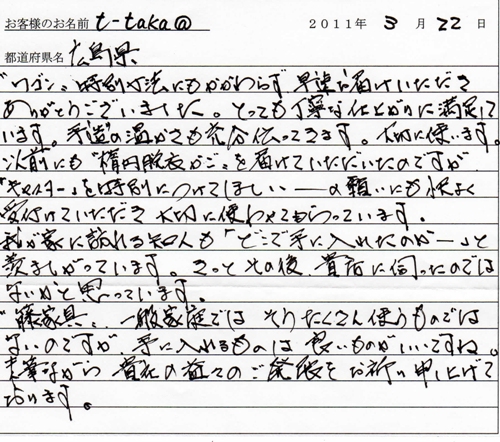 お客様のお名前 t-taka@ 2011年 3月 22日
都道府県名 広島県
"ワゴン" 特別寸法にもかかわらず 早速お届けいただき
ありがとうございました。とっても丁寧な仕上がりに満足して
います。手造りの温かさも充分伝ってきます。大切に使います。
以前にも"楕円脱衣かご"を届けていただいたのですが
"キャスター"を特別につけてほしい――の願いにも快よく
受付けていただき 大切に使わせてもらっています。
我が家に訪れる知人も「どこで手に入れたのかー」と
羨ましがっています。きっとその後、貴店に伺ったのでは
ないかと思っています。
"籐家具" 一般家庭では そうたくさん使うものでは
ないのですが、手に入れるものは 良いものがいいですね。
末筆ながら 貴社の益々のご発展をお祈り申し上げて
おります。